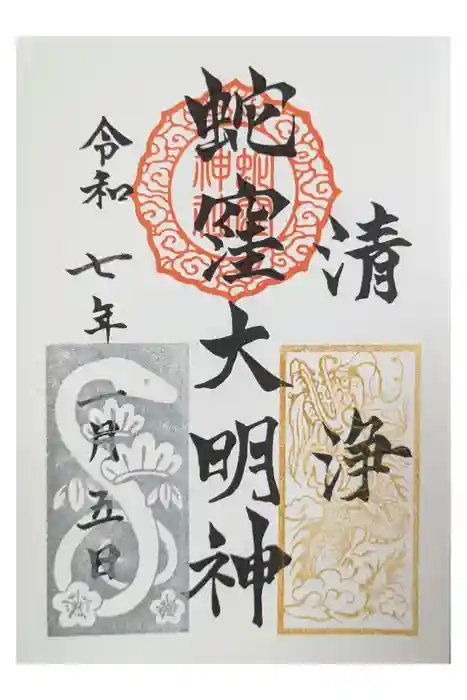 清浄
蛇窪大明神
令和七年一月五日
蛇窪
神社